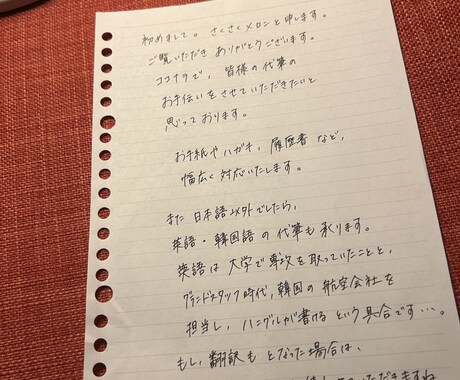 初めまして。さくさくメロンと申します。
ご覧いただき ありがとうございます。
ココナラで、皆様の代筆の
お手伝いをさせていただきたいと
思っております。
お手紙やハガキ, 履歴書 など,
幅広く対応いたします。
また 日本語以外でしたら,
英語・韓国語の代筆も承ります。
英語は大学で専攻を取っていたことと,
グランドスタッフ時代, 韓国の航空会社を
担当し, ハングルが書けるという具合です…。
もし, 翻訳も となった場合は,
いただきますね